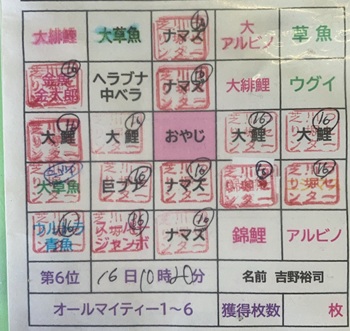 大緋鯉 大草魚 ナマズ 大アルビノ 草魚
金太郎 ヘラブナ中ベラ ナマズ 大緋鯉 ウグイ
大鯉 大鯉 おやじ 大鯉 大鯉
大草魚 巨ブナ ナマズ
青魚 ジャンボ ナマズ 錦鯉 アルビノ
第6位 16日10時20分 名前 吉野裕司
オールマイティー1~6 獲得枚数 枚